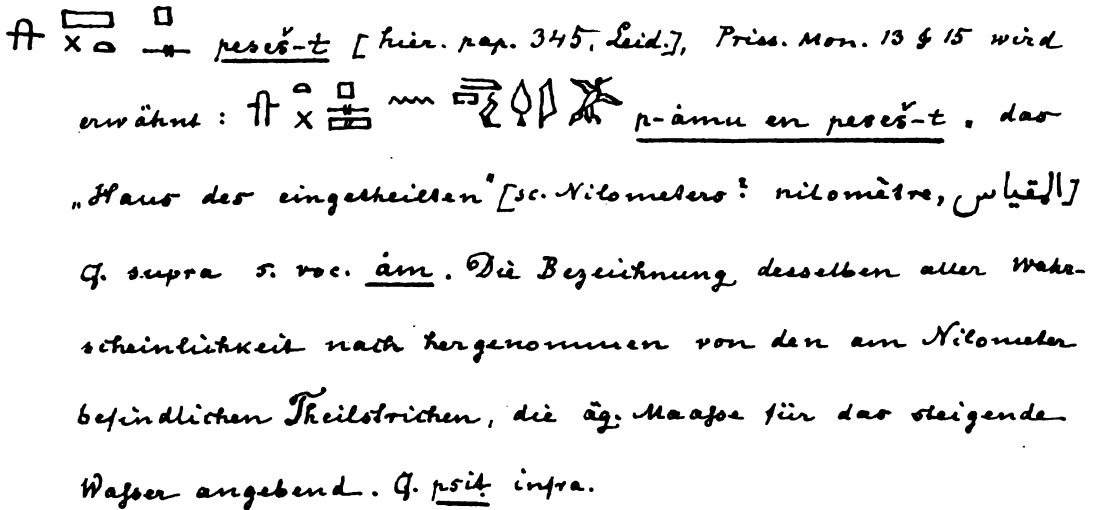 peseš-t [hier. pap. 345, Leid.], Priss. Mon. 13 & 15 wird
erwähnt: p-åmu en peseš-t. das
„Haus des eingetheilten" [sc. Nilometers? nilomètre, المقياس]
Cf. supra s. voc. åm. Die Bezeichnung desselben aller Wahr-
scheinlichkeit nach hergenommen von den am Nilometer
befindlichen Theilstrichen, die äg. Maaſse für das steigende
Waſser angebend. Cf. psit infra.